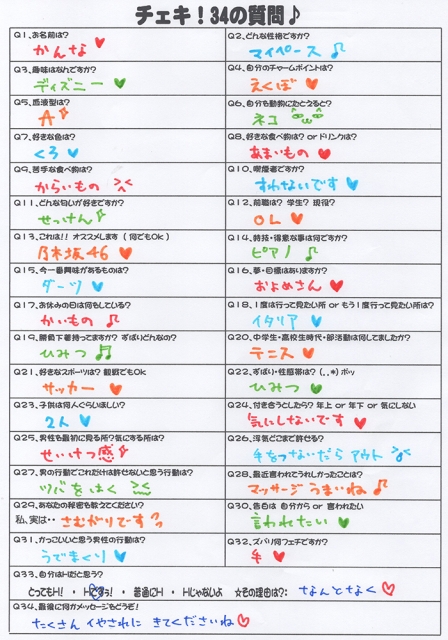 チェキ！34の質問♪
Q1、お名前は？
かんな♥
Q2、どんな性格ですか？
マイペース♫
Q3、趣味はなんですか？
ディズニー♥
Q4、自分のチャームポイントは？
えくぼ♥
Q5、血液型は？
A
Q6、自分を動物にたとえると？
ネコ
Q7、好きな色は？
くろ♥
Q8、好きな食べ物は？ or ドリンクは？
あまいもの♥
Q9、苦手な食べ物は？
からいもの
Q10、喫煙者ですか？
すわないです♥
Q11、どんな匂いが好きですか？
せっけん
Q12、前職は？ 学生？ 現役？
OL♥
Q13、これは!! オススメします（何でもOk）
乃木坂46♥
Q14、特技・得意な事は何ですか？
ピアノ♪
Q15、今一番興味があるものは？
ダーツ♥
Q16、夢・目標はありますか？
およめさん♥
Q17、お休みの日は何をしている？
かいもの♫
Q18、1度は行って見たい所 or もう1度行って見たい所は？
イタリア♥
Q19、勝負下着持ってますか？ ずばりどんなの？
ひみつ♫
Q20、中学生・高校生時代・部活動は何してましたか？
テニス♥
Q21、好きなスポーツは？ 観戦でもOK
サッカー♥
Q22、ずばり・性感帯は？ (..*)ポッ
ひみつ♥
Q23、子供は何人ぐらいほしい？
2人♥
Q24、付き合うとしたら？ 年上 or 年下 or 気にしない
気にしないです♥
Q25、男性を最初に見る所？気にする所は？
せいけつ感
Q26、浮気どこまで許せる？
手をつないだら アウト
Q27、男の行動でこれだけは許せないと思う行動は？
ツバをはく
Q28、最近言われてうれしかったことは？
マッサージ うまいね♪
Q29、あなたの秘密を教えてください？
私、実は・・さむがりです
Q30、告白は 自分から or 言われたい
言われたい♥
Q31、かっこいいと思う男性の行動は？
うでまくり♥
Q32、ズバリ何フェチですか？
手♥
Q33、自分はHだと思う？
とってもH！ ・ Hですぅ！ ・ 普通にH ・ Hじゃないよ ☆その理由は？： なんとなく♡
Q34、最後に何かメッセージをどうぞ！
たくさん イやされに きてくださいね♡